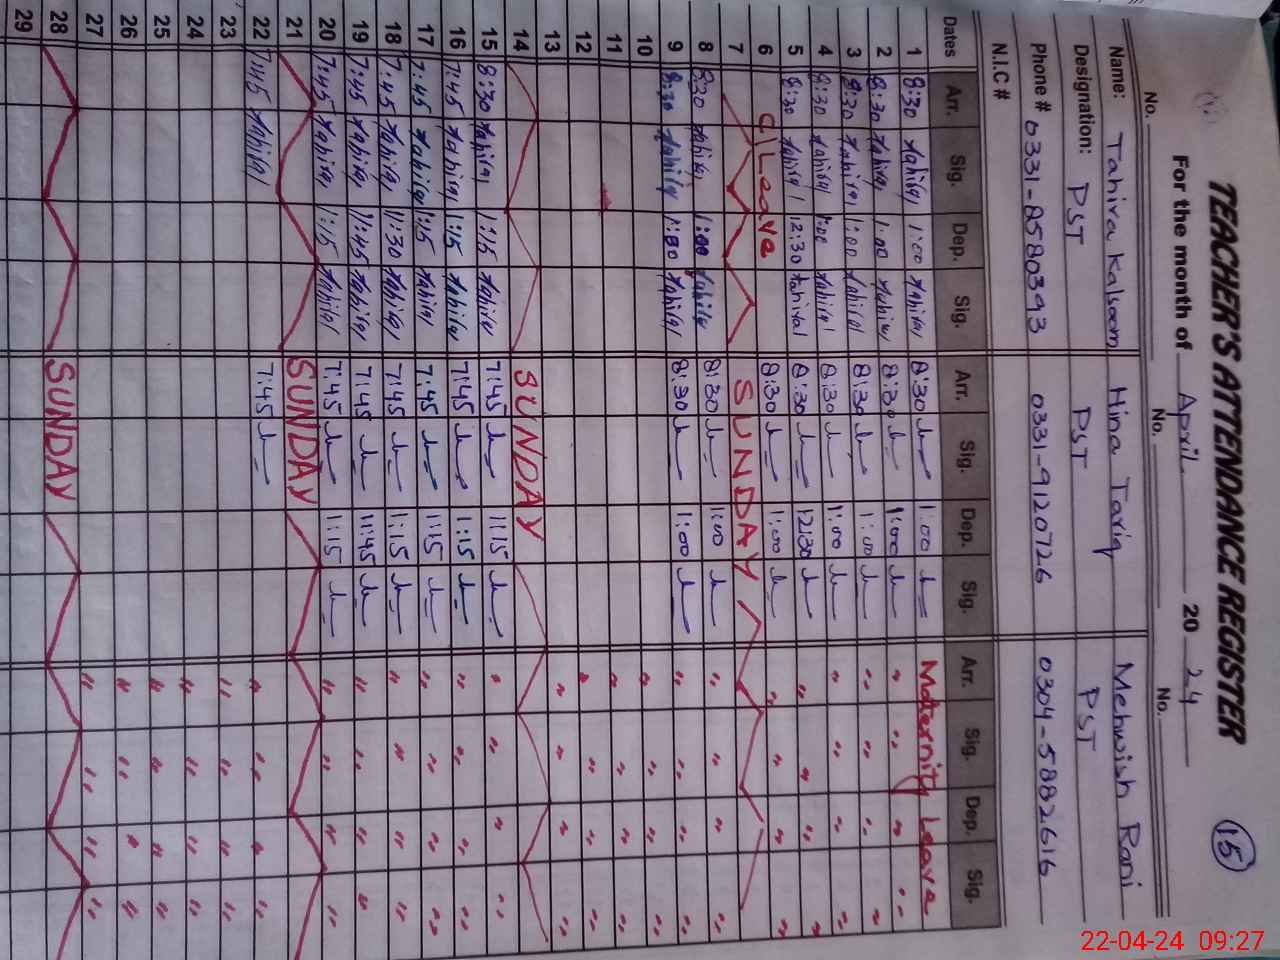 TEACHER'S ATTENDANCE REGISTER 15
For the month of April 20 24
No. No. No.
Name: Tahira Kalsoom Hina Tariq Mehwish Rani
Designation: PST PST PST
Phone # 0331-8580393 0331-9120726 0304-5882616
N.I.C #
Dates Arr. Sig. Dep. Sig. Arr. Sig. Dep. Sig. Arr. Sig. Dep. Sig.
1 8:30 Tahira 1:00 Tahira 8:30 1:00 Maternity Leave
2 8:30 Tahira 1:00 Tahira 8:30 1:00 " " " "
3 8:30 Tahira 1:00 Tahira 8:30 1:00 " " " "
4 8:30 Tahira 1:00 Tahira 8:30 1:00 " " " "
5 8:30 Tahira 12:30 Tahira 8:30 12:30 " " " "
6 C/Leave 8:30 1:00 " " " "
7 SUNDAY
8 8:30 Tahira 1:00 Tahira 8:30 1:00 " " " "
9 8:30 Tahira 1:00 Tahira 8:30 1:00 " " " "
10 " " " "
11 " " " "
12 " " " "
13 " " " "
14 SUNDAY
15 8:30 Tahira 1:15 Tahira 7:45 1:15 " " " "
16 7:45 Tahira 1:15 Tahira 7:45 1:15 " " " "
17 7:45 Tahira 1:15 Tahira 7:45 1:15 " " " "
18 7:45 Tahira 11:30 Tahira 7:45 1:15 " " " "
19 7:45 Tahira 11:45 Tahira 7:45 11:45 " " " "
20 7:45 Tahira 1:15 Tahira 7:45 1:15 " " " "
21 SUNDAY
22 7:45 Tahira 7:45 " " " "
23 " " " "
24 " " " "
25 " " " "
26 " " " "
27 " " " "
28 SUNDAY
29
22-04-24 09:27